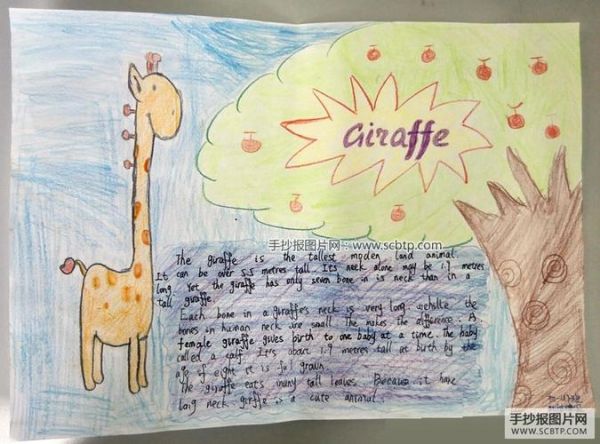 Giraffe
手抄报图片网:www.scbtp.com
The giraffe is the tallest moden land animal.
It can be over 5.5 metres tall. Its neck alone may be 1.7 metres
long. Yet the giraffe has only seven bone in is neck than in a
tall giraffe.
Each bone in a giraffe's neck is very long. while the
bones in human neck are small. The makes. The difference. A
female giraffe gives birth to one baby at a time. The baby
called a calf. It's about 1.9 metres tall at birth by the
age of eight it is ful grown.
The giraffe eats many tall leaves. Because it have
long neck. giraffe is a cute animal.
手抄报图片网
WWW.SCBTP.COM